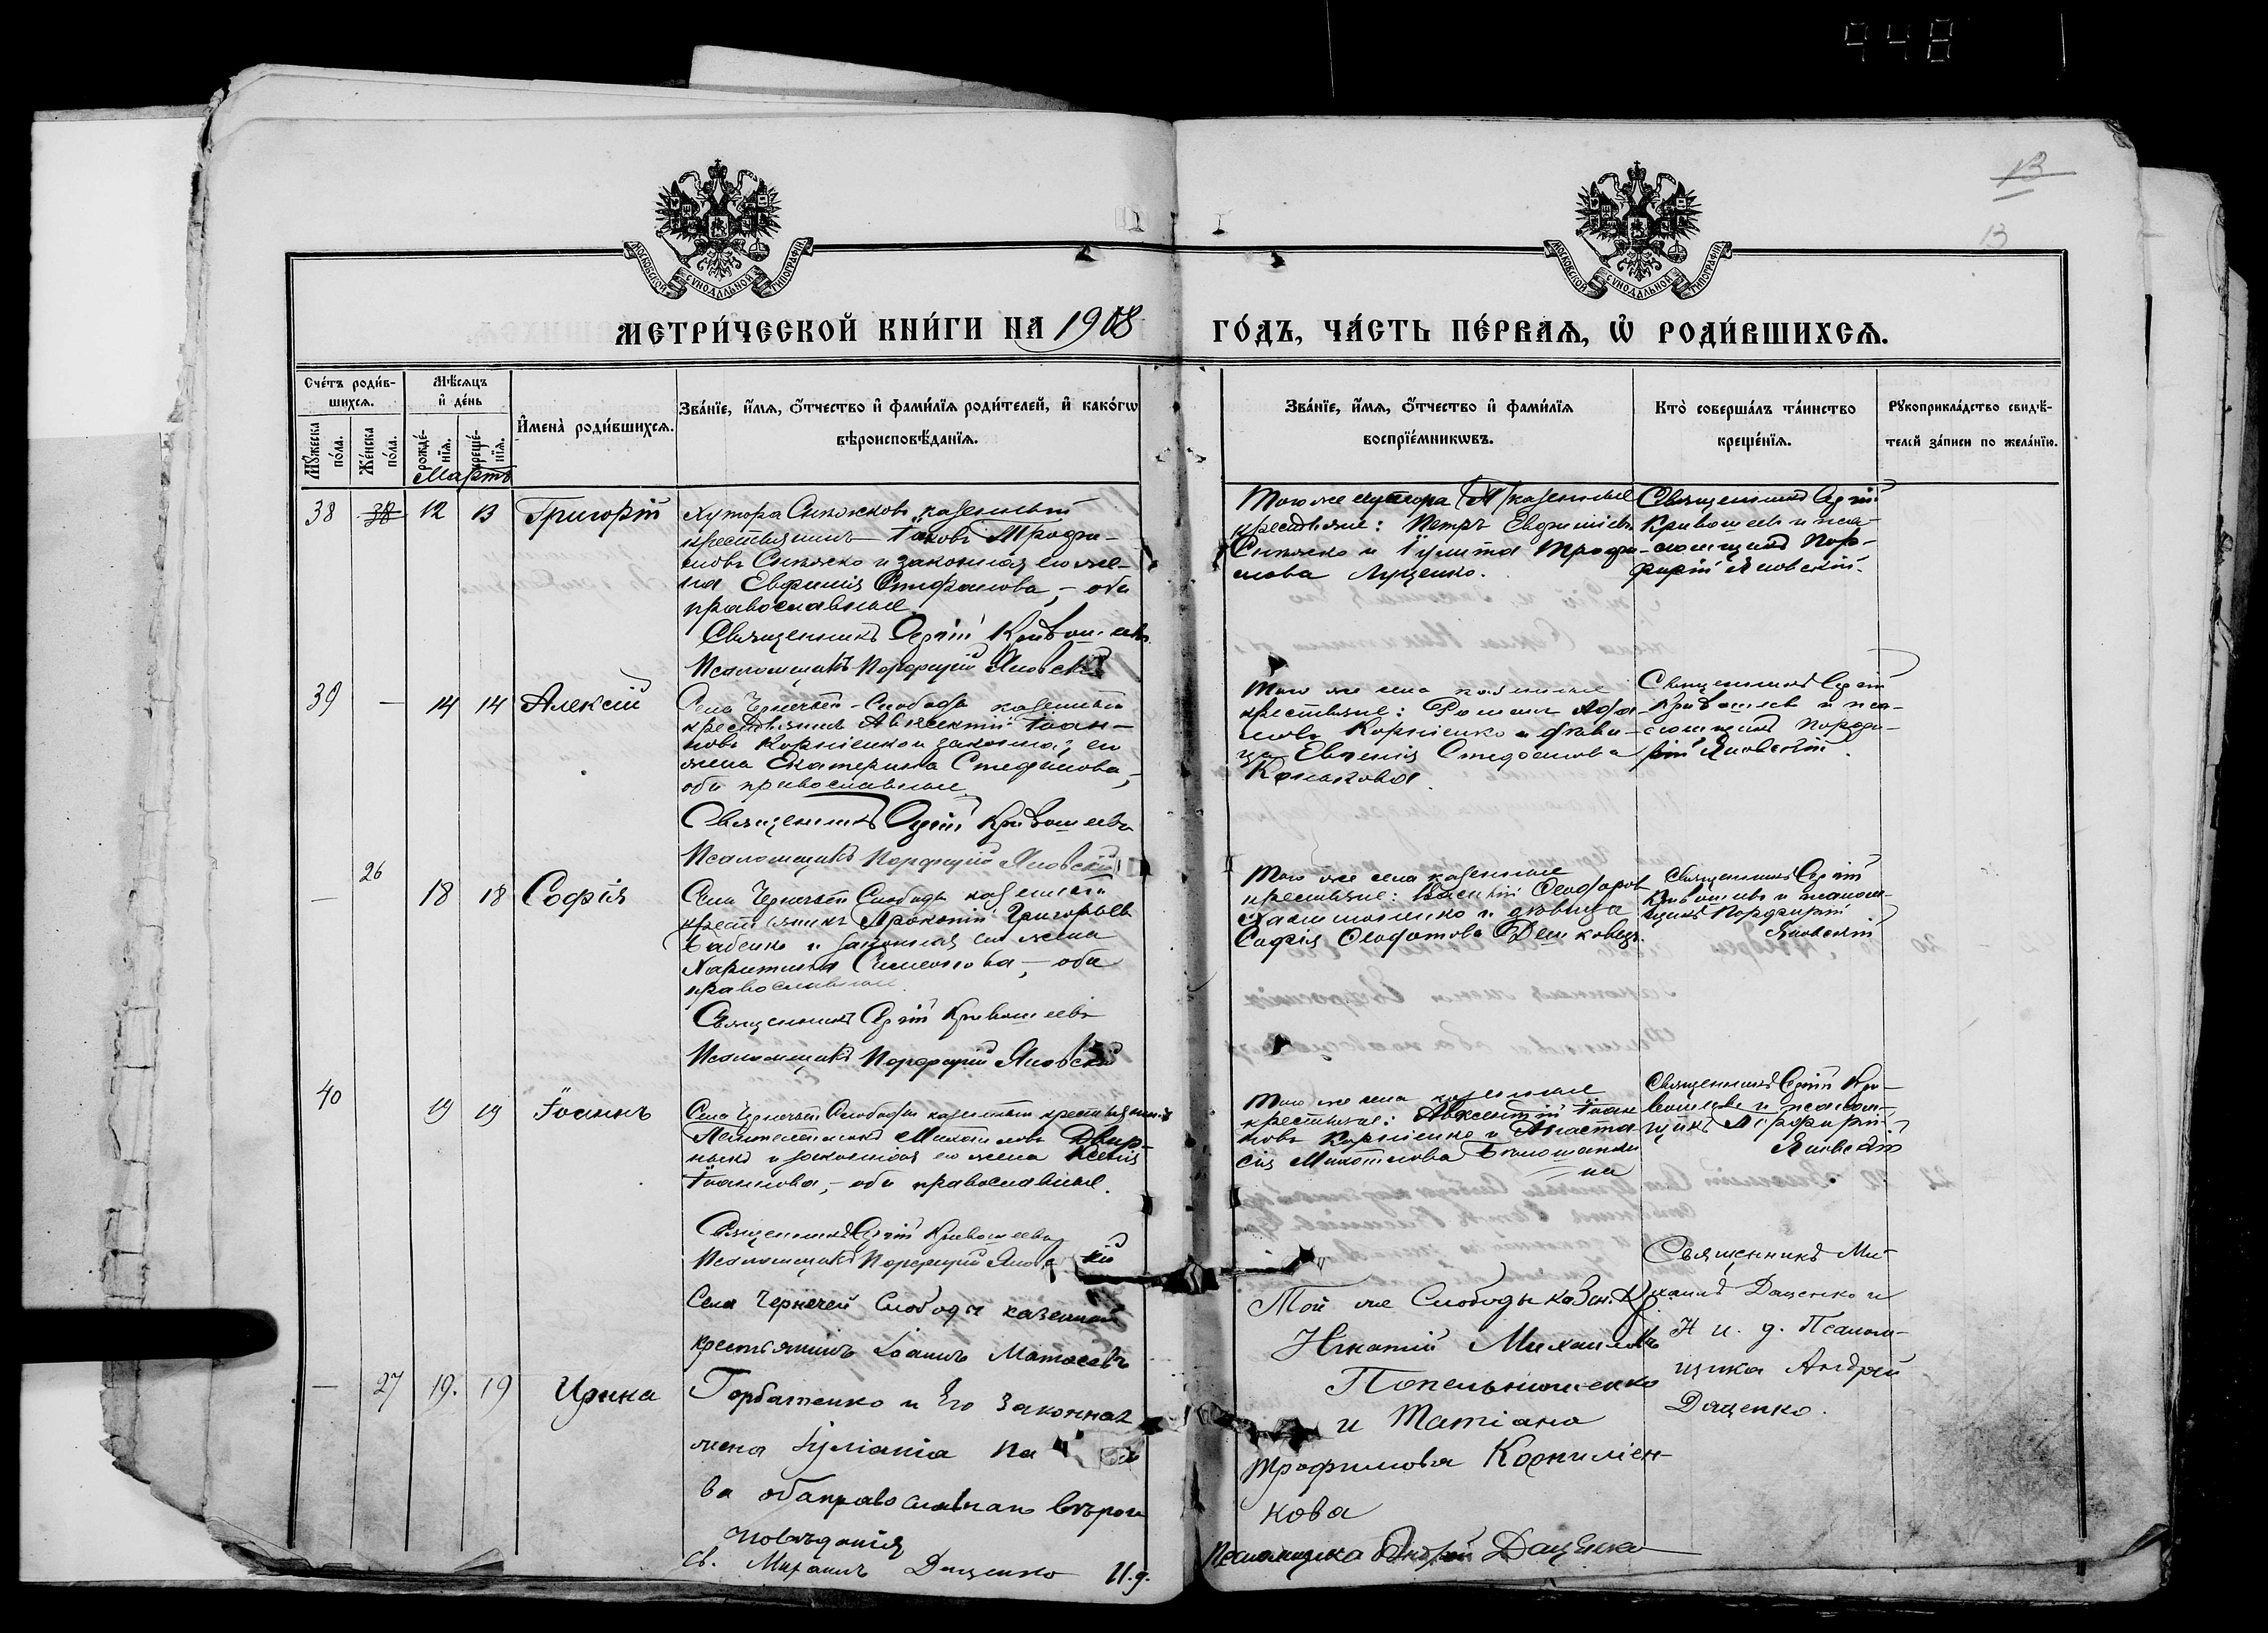 948
13
13
МОСКОВСКОЙ СѴНОДАЛЬНОЙ ТИПОГРАФІИ
МОСКОВСКОЙ СѴНОДАЛЬНОЙ ТИПОГРАФІИ
МЕТРИ́ЧЕСКОЙ КНИ́ГИ НА 1908
ГО́ДЪ, ЧА́СТЬ ПЕ́РВАѦ, Ѽ РОДИ́ВШИХСѦ.
Сче́тъ роди́в-
шихсѧ.
Мꙋ́жеска по́ла.
Же́нска по́ла.
Мѣ́сѧцъ
и҆ де́нь
рожде́-
нїѧ.
креще́-
нїѧ.
И҆мена̀ роди́вшихсѧ.
Зва́нїе, и҆́мѧ, ѻ҆́тчество и҆ фами́лїѧ роди́телей, и҆ како́гѡ
вѣроисповѣ́данїѧ.
Зва́нїе, и҆́мѧ, ѻ҆́тчество и҆ фами́лїѧ
воспрїе́мникѡвъ.
Кто̀ соверша́лъ та́инство
креще́нїѧ.
Рꙋкоприкла́дство свидѣ́-
телей за́писи по жела́нїю.
Мартъ
38 38 12 13 Григорій
Хутора Синяжковъ казенный
крестьянинъ Іаковъ Трофи-
мовъ Синяжко и законная его же-
на Евфимія Стефанова, – оба
православные.
Священникъ Сергій Кривошеевъ
Псаломщикъ Порфирій Яновскій
Того же хутора казенные
крестьяне: Петръ Евфиміевъ
и Іулита Трофи-
мова Луценко.
Священникъ Сергій
Кривошеевъ и пса-
ломщикъ Пор-
фирій Яновскій.
39 — 14 14 Алексій
Села Чернечьей-Слободы казенный
крестьянинъ Авксентій Іоан-
новъ Корніенко и законная его
жена Екатерина Стефанова,
оба православные.
Священникъ Сергій Кривошеевъ
Псаломщикъ Порфирій Яновскій
Того же села казенные
крестьяне: Романъ
Корніенко и дѣви-
ца Евгенія Стефанова
Священникъ Сергій
Кривошеевъ и пса-
ломщикъ Порфи-
рій Яновскій.
— 26 18 18 Софія
Села Чернечьей Слободы казенный
крестьянинъ Прокопій Григорьевъ
Бабенко и законная его жена
Харитина Симеонова, – оба
православные.
Священникъ Сергій Кривошеевъ
Псаломщикъ Порфирій Яновскій
Того же села казенные
крестьяне: Василій Ѳеодоровъ
и дѣвица
Софія
Священникъ Сергій
Кривошеевъ и псалом-
щикъ Порфирій
Яновскій
40 19 19 Іоаннъ
Села Чернечьей Слободы казенный крестьянинъ
Пантелеимонъ Михаиловъ
и законная его жена Ксенія
Іоаннова, – оба православные.
Священникъ Сергій Кривошеевъ
Псаломщикъ Порфирій
Того же села казенные
крестьяне: Авксентій Іоан-
новъ Корніенко и Анаста-
сія Михаилова
Священникъ Сергій Кри-
вошеевъ и псалом-
щикъ Порфирій
Яновскій
— 27 19. 19 Ирина
Села Чернечей Слободы казенный
крестьянинъ Іоаннъ Матѳеевъ
Горбатенко и Его Законная
жена Іуліанія
ва оба православнаго вѣроис
повѣданія
Св. Михаилъ Даценко И.д.
Той же Слободы казен. кр.
Игнатій Михаиловъ
Попельнюшенко
и Татіана
Трофимова Корнилен-
кова
псаломщика Андрей Даценко
Священникъ Ми-
хаилъ Даценко и
И. д. Псалом-
щика Андрей
Даценко.